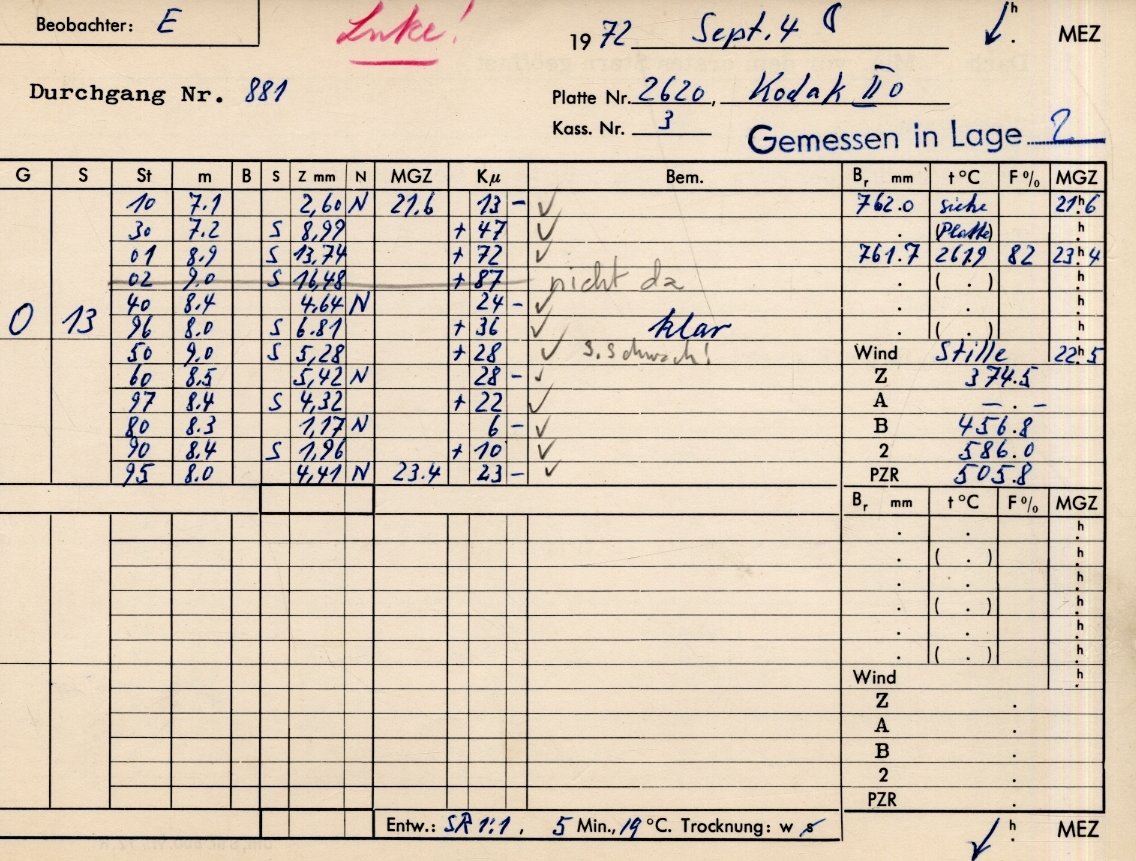 Beobachter: E
Luke!
1972 Sept. 4 h MEZ
Durchgang Nr. 881
Platte Nr. 2620, Kodak IIo
Kass. Nr. 3
Gemessen in Lage 2
G S St m B S Z mm N MGZ Kμ Bem. Br mm t °C F % MGZ
10 7.1 2,60 N 21.6 13 - ✓ 762.0 siehe 21h6
30 7.2 S 8,99 + 47 ✓ . (Platte) h
01 8.9 S 13,74 + 72 ✓ 761.7 2619 82 23h4
02 9.0 S 16,48 + 87 nicht da . ( . ) h
40 8.4 4,64 N 24 - ✓ . . h
0 13 96 8.0 S 6.81 + 36 ✓ klar . ( . ) h
50 9,0 S 5,28 + 28 ✓ s. schwach! Wind Stille 22h5
60 8.5 5,42 N 28 - ✓ Z 374.5
97 8.4 S 4,32 + 22 ✓ A – . –
80 8.3 1,17 N 6 - ✓ B 456.8
90 8.4 S 1,96 + 10 ✓ 2 586.0
95 8.0 4,41 N 23.4 23 - ✓ PZR 505.8
Br mm t °C F % MGZ
. . h
. ( . ) h
. . h
. ( . ) h
. . h
. ( . ) h
Wind h
Z .
A .
B .
2 .
PZR .
Entw.: SR 1:1 , 5 Min., 19 °C. Trocknung: w s
h MEZ